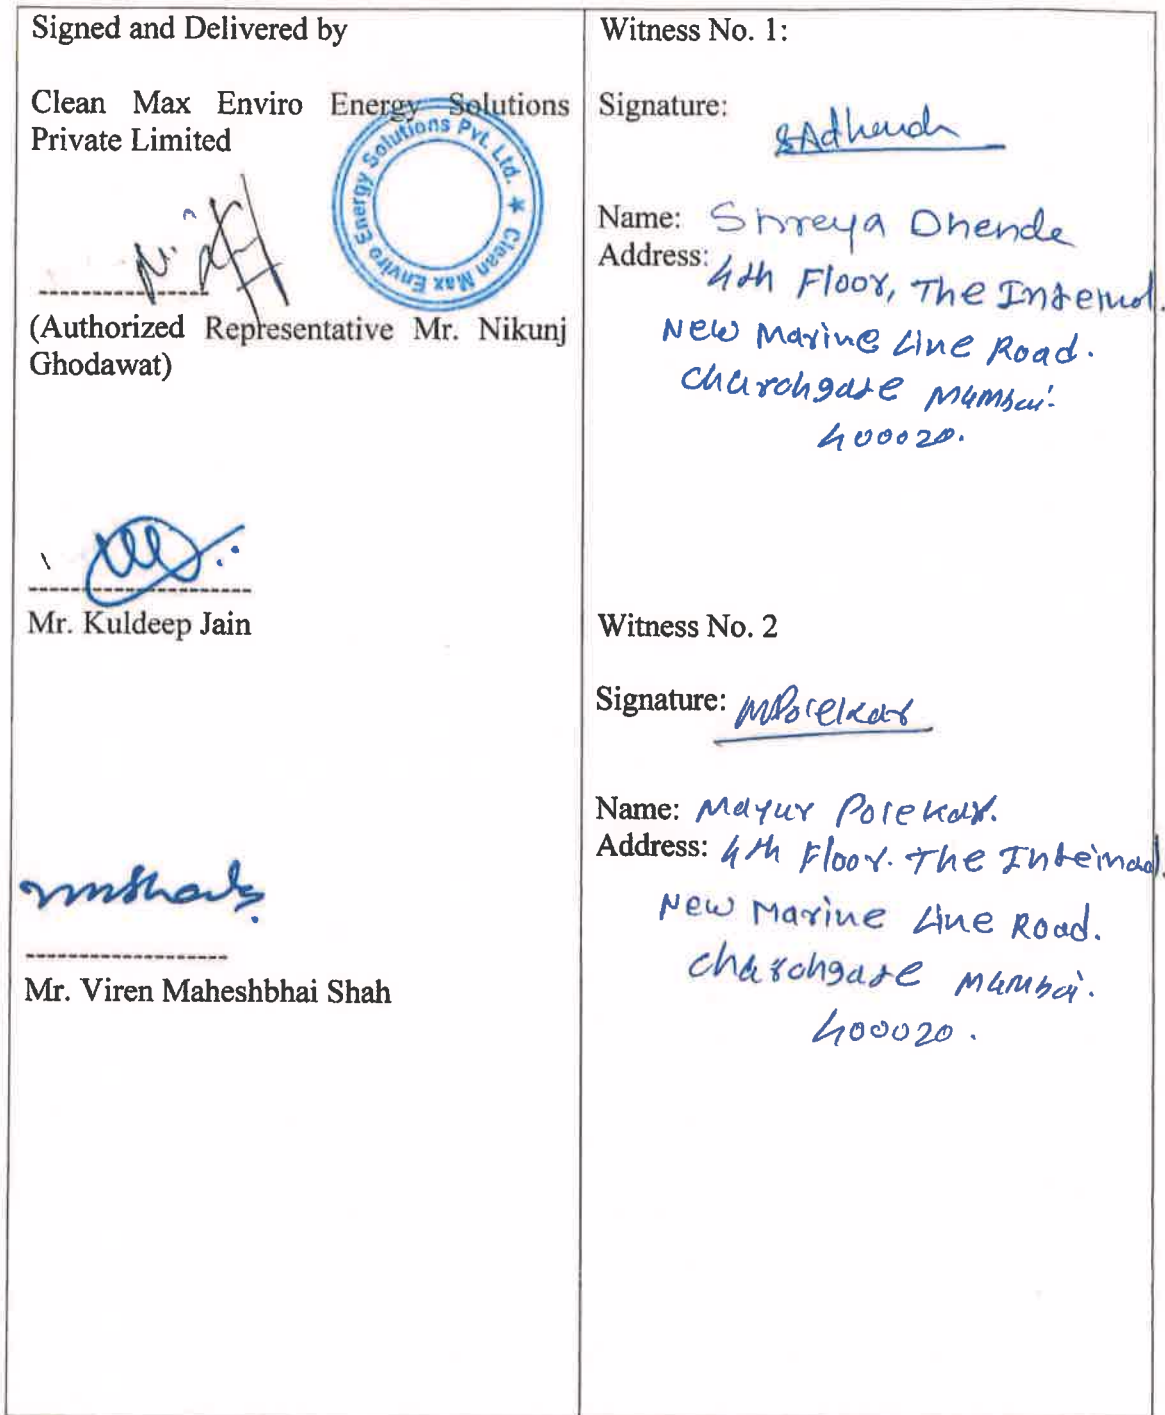 Signed and Delivered by
Clean Max Enviro Energy Solutions
Private Limited
Solutions Pvt. Ltd. ★ Clean Max Enviro Energy
(Authorized Representative Mr. Nikunj
Ghodawat)
Mr. Kuldeep Jain
Mr. Viren Maheshbhai Shah
Witness No. 1:
Signature:
Name: Shreya Dhende
Address: 4th Floor, The
New Marine Line Road.
Churchgate Mumbai.
400020.
Witness No. 2
Signature: MPorekar
Name: Mayur Porekar.
Address: 4th Floor. The
New Marine Line Road.
Churchgate Mumbai.
400020.